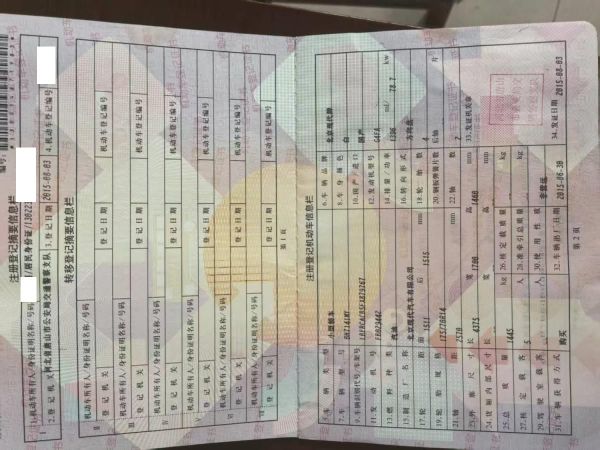 注册登记摘要信息栏
1.机动车所有人/身份证明名称/号码
/居民身份证/
2.登记机关
河北省唐山市公安局交通警察支队
3.登记日期
2015-08-03
4.机动车登记编号
转移登记摘要信息栏
机动车所有人/身份证明名称/号码
登记机关
登记日期
机动车登记编号
机动车所有人/身份证明名称/号码
登记机关
登记日期
机动车登记编号
机动车所有人/身份证明名称/号码
登记机关
登记日期
机动车登记编号
机动车所有人/身份证明名称/号码
登记机关
登记日期
机动车登记编号
机动车所有人/身份证明名称/号码
登记机关
登记日期
机动车登记编号
第1页
注册登记机动车信息栏
5.车辆类型 小型轿车 6.车辆品牌 北京现代牌
7.车辆型号 8.车身颜色 白
9.车辆识别代号/车架号 10.国产/进口 国产
11.发动机号 12.发动机型号 G4FA
13.燃料种类 汽油 14.排量/功率 1396 ml/ 78.7 kw
15.制造厂名称 北京现代汽车有限公司 16.转向形式 方向盘
17.轮距 前 1511 后 1515 mm 18.轮胎数 4
19.轮胎规格 175/70R14 20.钢板弹簧片数 后轴 片
21.轴距 2570 mm 22.轴数 2
23.外廓尺寸 长 4375 宽 1700 高 1460 mm 33.发证机关章
24.货厢内部尺寸 长 宽 高 mm
25.总质量 1445 kg 26.核定载质量 kg
27.核定载客 5 人 28.准牵引总质量 kg
29.驾驶室载客 人 30.使用性质 非营运
31.车辆获得方式 购买 32.车辆出厂日期 2015-06-30 34.发证日期 2015-08-03
第2页